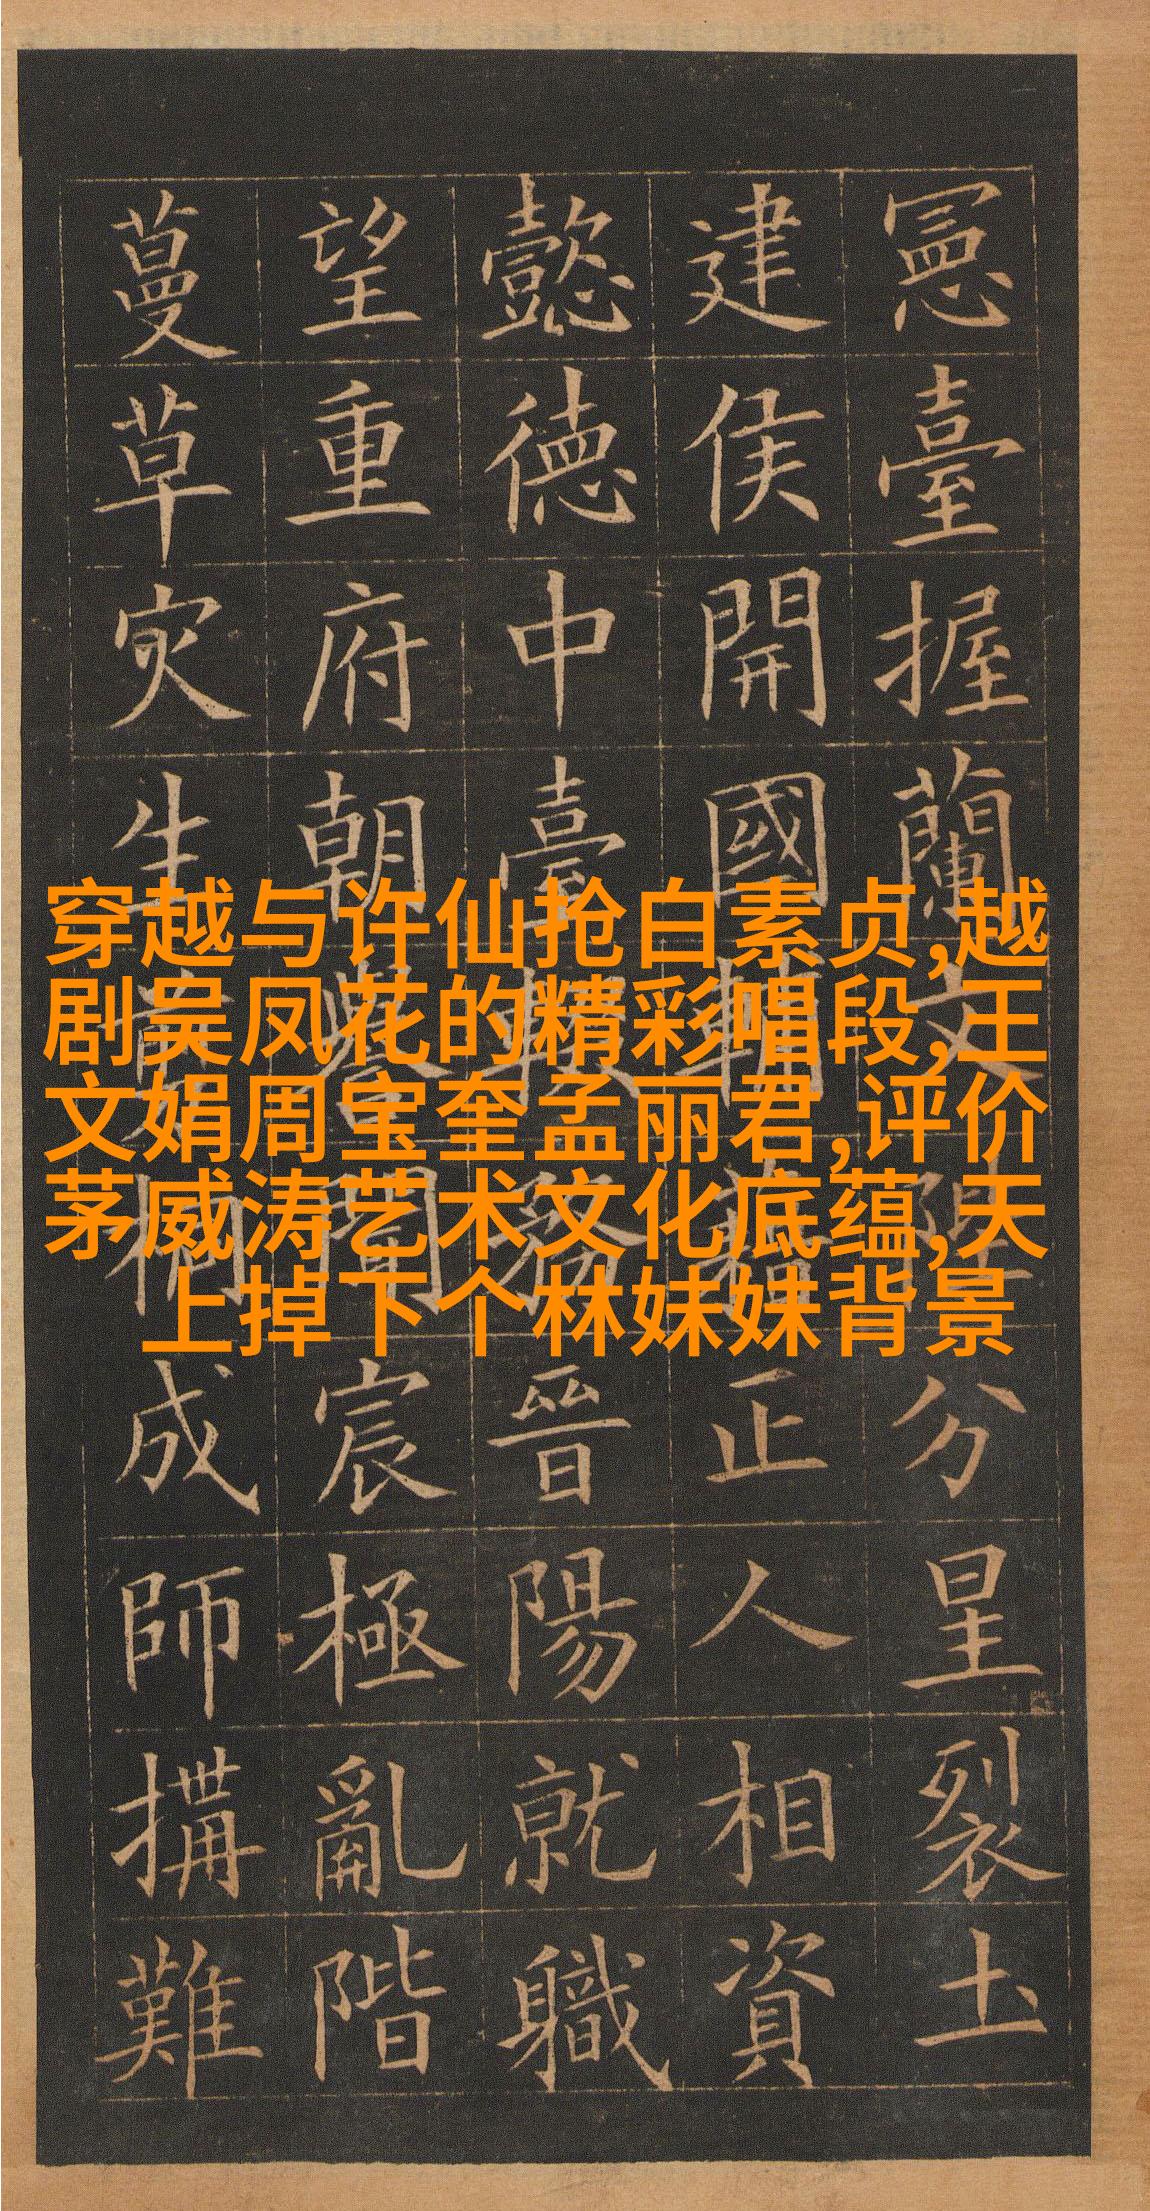 憲臺握蘭文陛分星裂土
建侯開國輔藉正人相資
懿德中臺輟務晉陽就職
望重府朝譽聞宸極亂階
蔓草灾生桐成師搆難
穿越与许仙抢白素贞,越
剧吴凤花的精彩唱段,王
文娟周宝奎孟丽君,评价
茅威涛艺术文化底蕴,天
上掉下个林妹妹背景